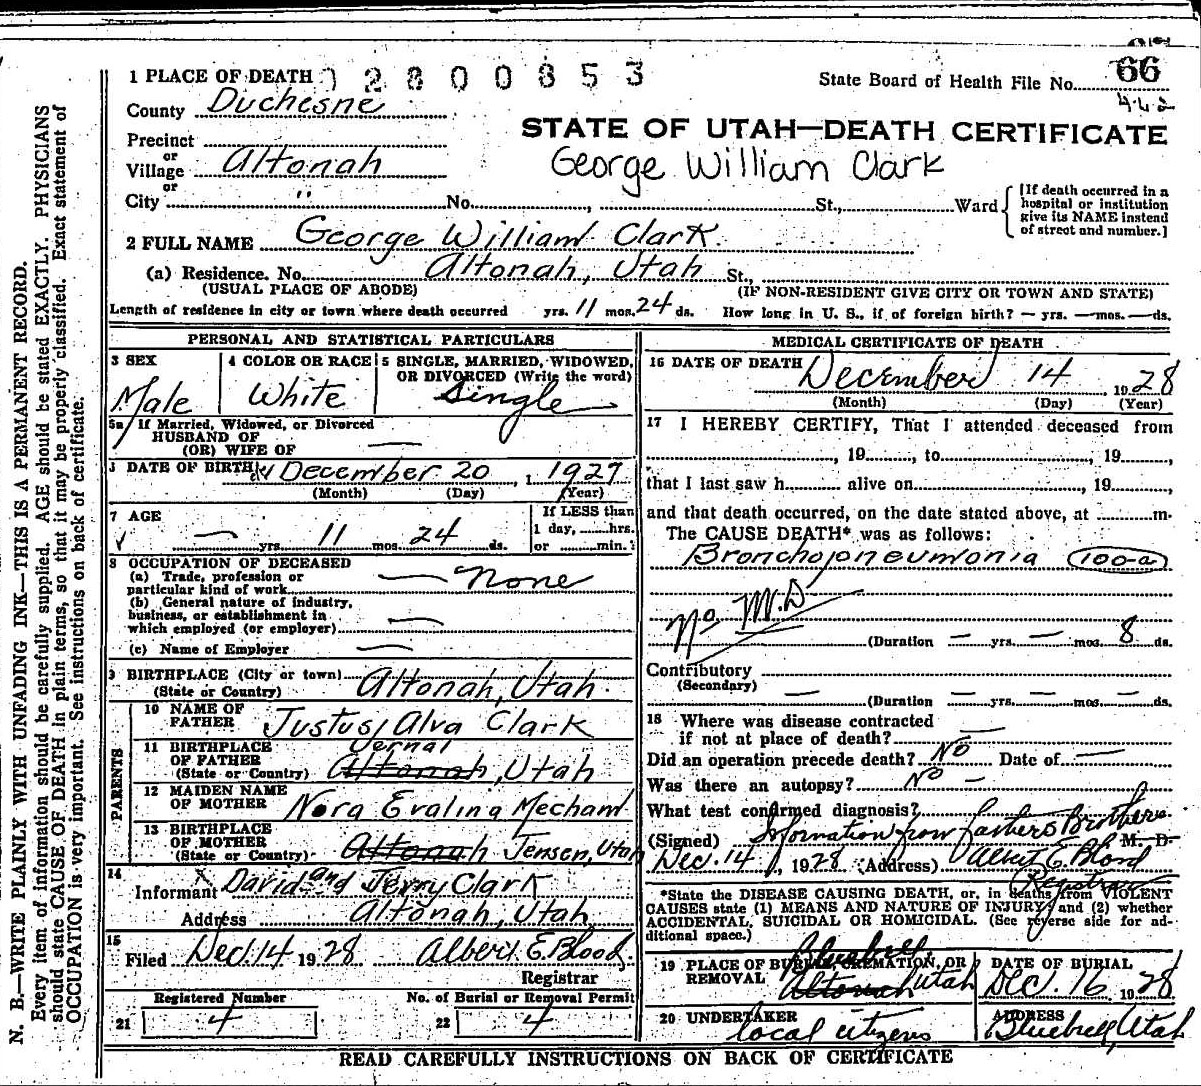 1 PLACE OF DEATH 2800853
State Board of Health File No. 66
442
County Duchesne
STATE OF UTAH—DEATH CERTIFICATE
George William Clark
Precinct
or
Village Altonah
or
City " No. , St., Ward
[If death occurred in a
hospital or institution
give its NAME instead
of street and number.]
2 FULL NAME George William Clark
(a) Residence. No. Altonah, Utah St.,
(USUAL PLACE OF ABODE) (IF NON-RESIDENT GIVE CITY OR TOWN AND STATE)
Length of residence in city or town where death occurred yrs. 11 mos. 24 ds. How long in U. S., if of foreign birth? — yrs. — mos. — ds.
PERSONAL AND STATISTICAL PARTICULARS
3 SEX
Male
4 COLOR OR RACE
White
5 SINGLE, MARRIED, WIDOWED,
OR DIVORCED (Write the word)
Single
5a If Married, Widowed, or Divorced
HUSBAND OF
(OR) WIFE OF —
DATE OF BIRTH December 20, 1927
(Month) (Day) (Year)
7 AGE
— yrs. 11 mos. 24 ds.
If LESS than
1 day, hrs.
or min.
8 OCCUPATION OF DECEASED
(a) Trade, profession or
particular kind of work — None
(b) General nature of industry,
business, or establishment in
which employed (or employer) —
(c) Name of Employer —
9 BIRTHPLACE (City or town)
(State or Country) Altonah, Utah.
PARENTS
10 NAME OF
FATHER Justus Alva Clark
11 BIRTHPLACE
OF FATHER
(State or Country) Vernal Altonah, Utah
12 MAIDEN NAME
OF MOTHER Nora Evalina Mecham
13 BIRTHPLACE
OF MOTHER
(State or Country) Altonah Jensen, Utah
14
Informant David and Jerry Clark
Address Altonah, Utah
15
Filed Dec. 14 1928 Albert E. Blood
Registrar
Registered Number
21 4
No. of Burial or Removal Permit
22 4
MEDICAL CERTIFICATE OF DEATH
16 DATE OF DEATH December 14, 1928
(Month) (Day) (Year)
17 I HEREBY CERTIFY, That I attended deceased from
, 19 , to , 19 ,
that I last saw h alive on , 19 ,
and that death occurred, on the date stated above, at m.
The CAUSE DEATH* was as follows:
Bronchopneumonia 100-a
No M.D
(Duration — yrs. — mos. 8 ds.
Contributory
(Secondary)
— (Duration — yrs. — mos. — ds.
18 Where was disease contracted
if not at place of death? —
Did an operation precede death? No Date of —
Was there an autopsy? No —
What test confirmed diagnosis?
(Signed) Information from fathers Brothers M. D.
Dec. 14, 1928 (Address) Albert E. Blood
Registrar
*State the DISEASE CAUSING DEATH, or, in deaths from VIOLENT
CAUSES state (1) MEANS AND NATURE OF INJURY and (2) whether
ACCIDENTAL, SUICIDAL OR HOMICIDAL. (See reverse side for ad-
ditional space.)
19 PLACE OF BURIAL, CREMATION, OR
REMOVAL Bluebell Altonah Utah
DATE OF BURIAL
Dec. 16 1928
20 UNDERTAKER
local citizens
ADDRESS
Bluebell, Utah
READ CAREFULLY INSTRUCTIONS ON BACK OF CERTIFICATE
N. B.—WRITE PLAINLY WITH UNFADING INK—THIS IS A PERMANENT RECORD.
Every item of information should be carefully supplied. AGE should be stated EXACTLY. PHYSICIANS
should state CAUSE OF DEATH in plain terms, so that it may be properly classified. Exact statement of
OCCUPATION is very important. See instructions on back of certificate.